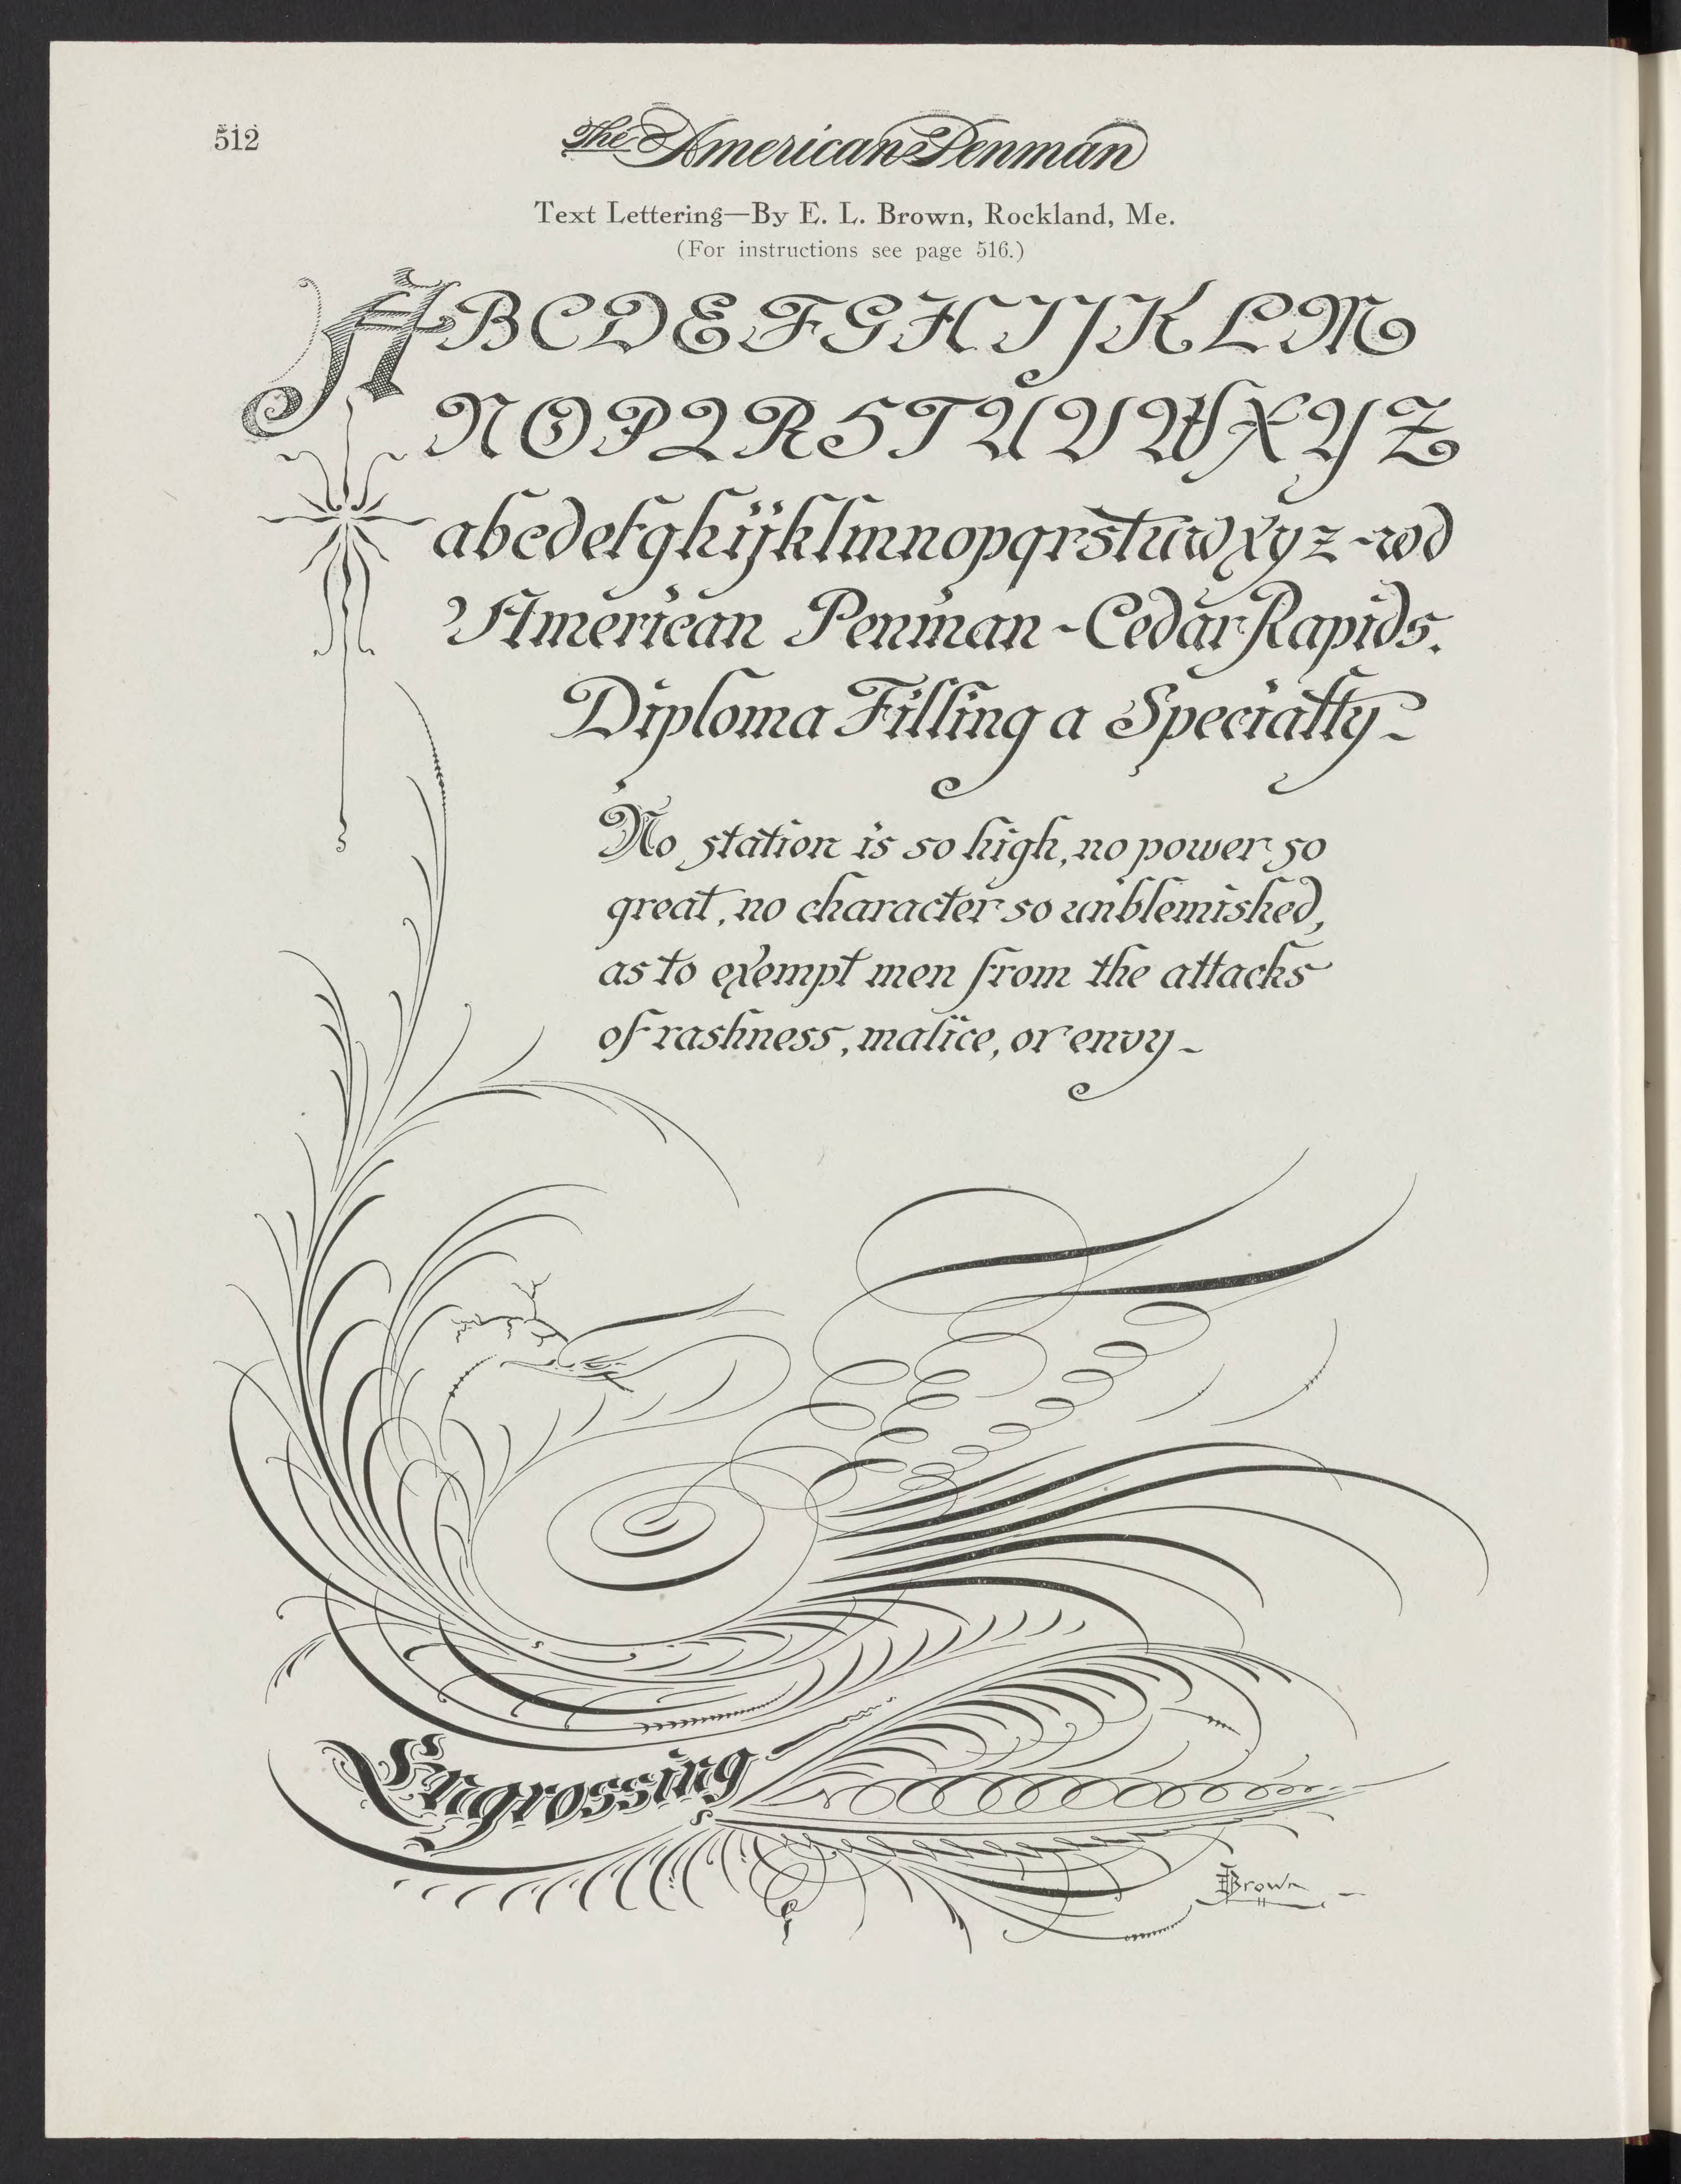 512
The American Penman
Text Lettering—By E. L. Brown, Rockland, Me.
(For instructions see page 516.)
A B C D E F G H I J K L M
N O P Q R S T U V W X Y Z
a b c d e f g h i j k l m n o p q r s t u w x y z - w d
American Penman - Cedar Rapids.
Diploma Filling a Specialty -
No station is so high, no power so
great, no character so unblemished,
as to exempt men from the attacks
of rashness, malice, or envy -
Engrossing
Brown